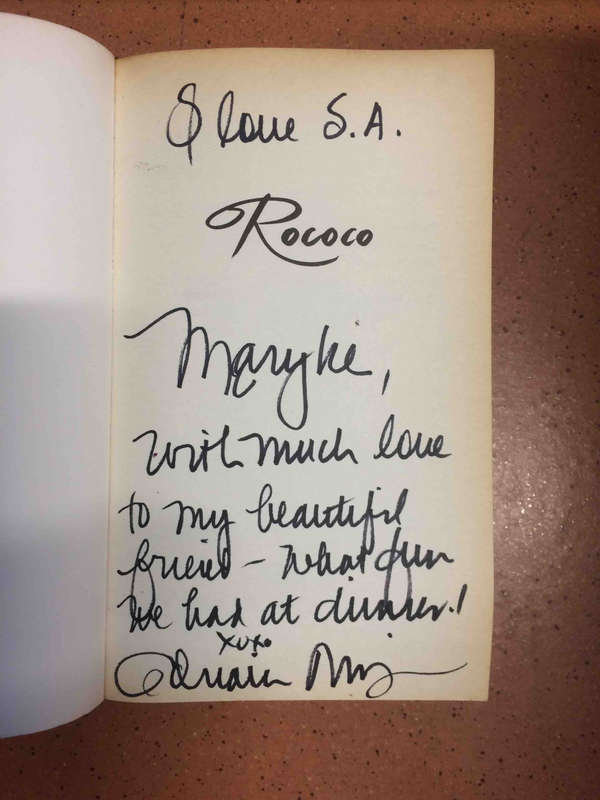 I love S.A.
Rococo
Maryke,
with much love
to my beautiful
friend - What fun
we had at dinner!
xoxo
Adriana